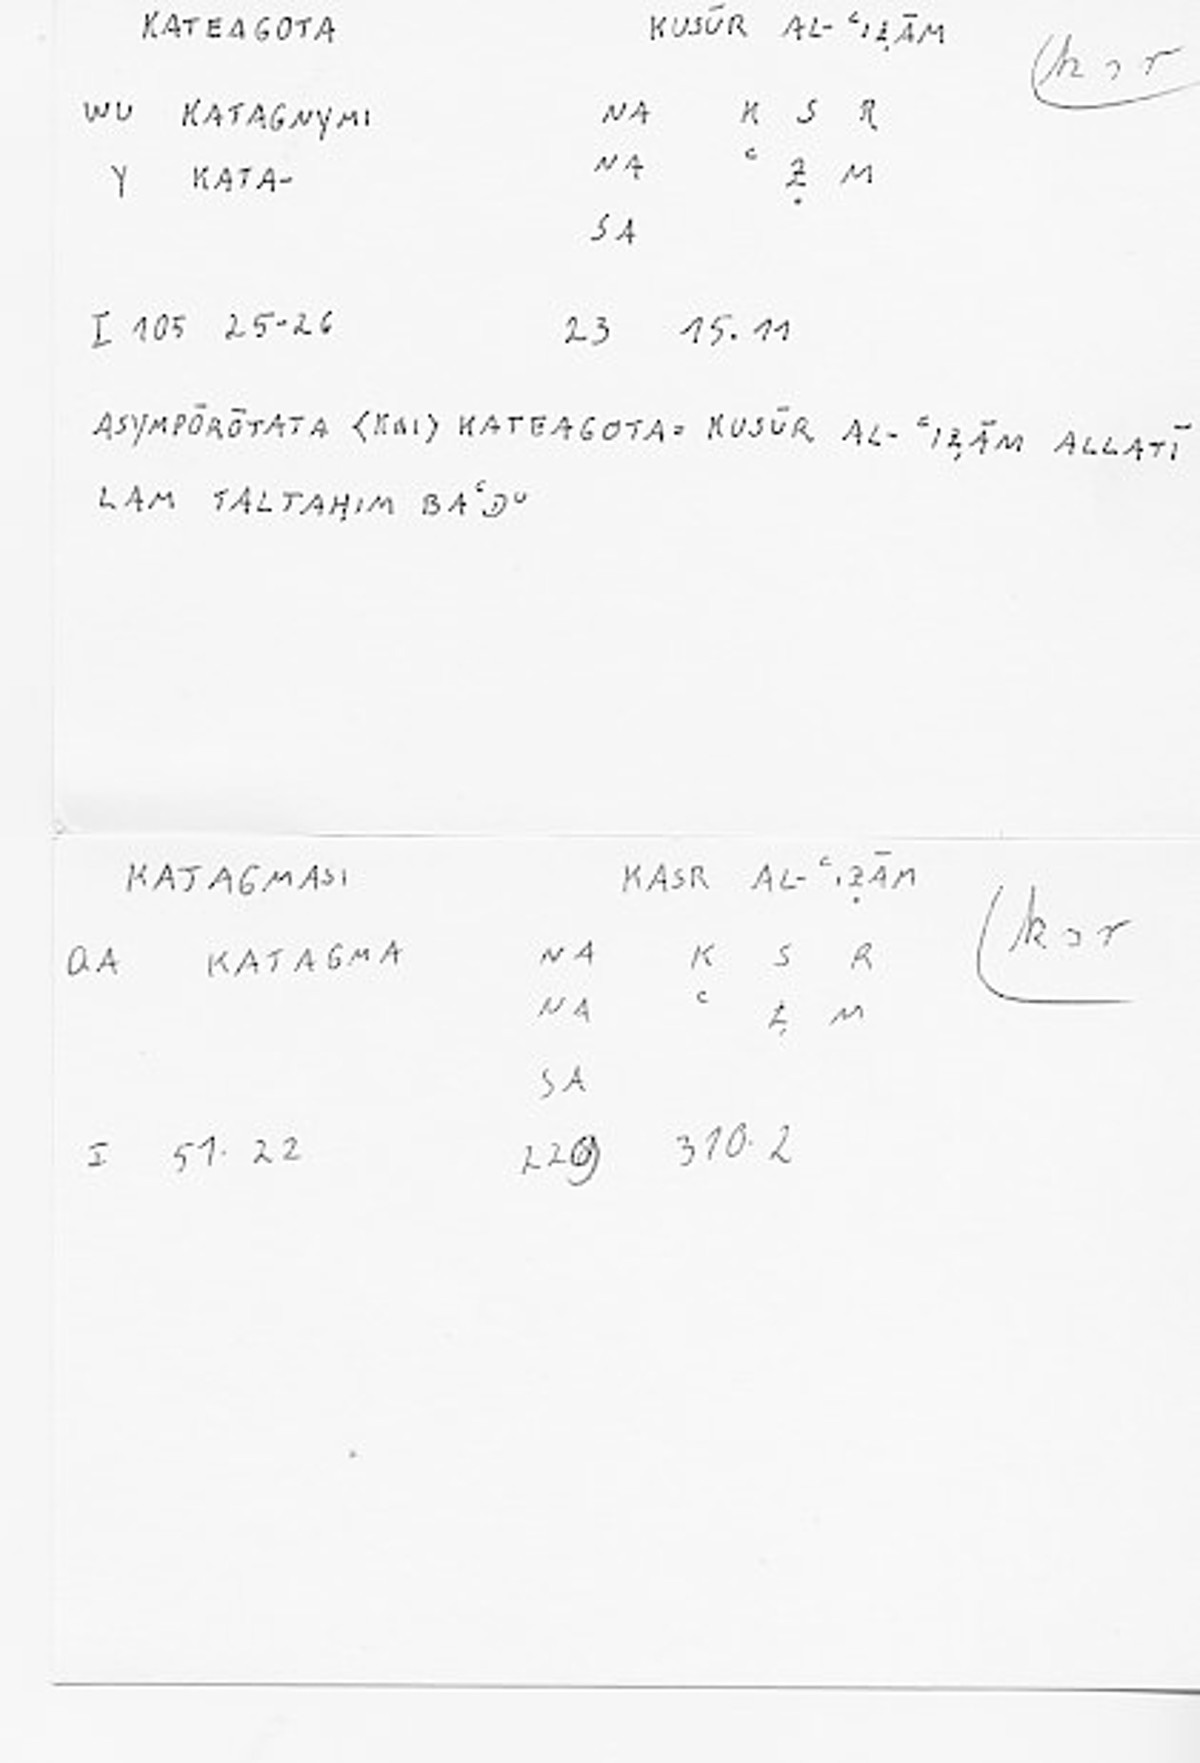 KATEAGOTA KUSŪR AL-ʿIẒĀM ksr
WU KATAGNYMI NA K S R
Y KATA- NA ʿ Ẓ M
SA
I 105 25-26 23 15.11
ASYMPŌRŌTATA <KAI> KATEAGOTA = KUSŪR AL-ʿIẒĀM ALLATĪ
LAM TALTAḤIM BAʿDU
KATAGMASI KASR AL-ʿIẒĀM ksr
QA KATAGMA NA K S R
NA ʿ Ẓ M
SA
I 51.22 310.2